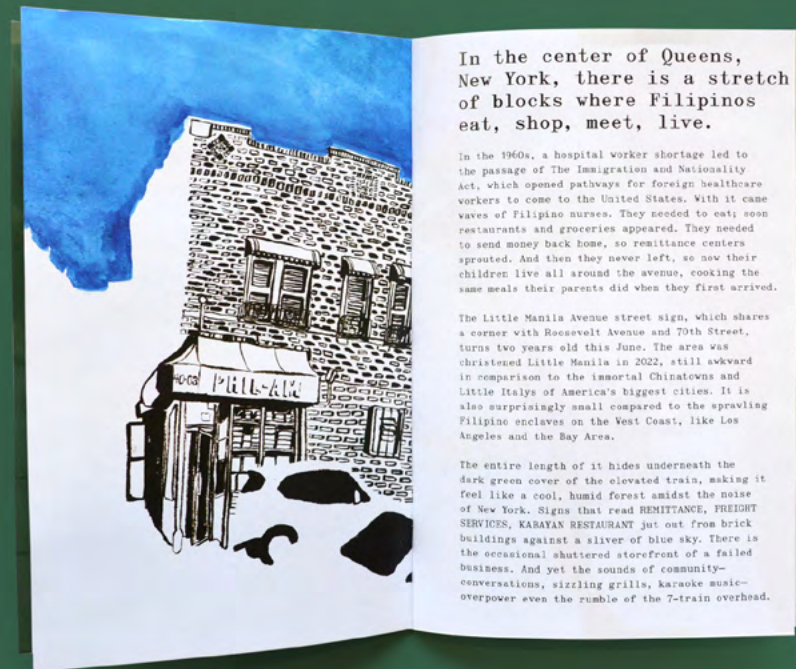 40-03 PHIL-AM
In the center of Queens,
New York, there is a stretch
of blocks where Filipinos
eat, shop, meet, live.
In the 1960s, a hospital worker shortage led to
the passage of The Immigration and Nationality
Act, which opened pathways for foreign healthcare
workers to come to the United States. With it came
waves of Filipino nurses. They needed to eat; soon
restaurants and groceries appeared. They needed
to send money back home, so remittance centers
sprouted. And then they never left, so now their
children live all around the avenue, cooking the
same meals their parents did when they first arrived.
The Little Manila Avenue street sign, which shares
a corner with Roosevelt Avenue and 70th Street,
turns two years old this June. The area was
christened Little Manila in 2022, still awkward
in comparison to the immortal Chinatowns and
Little Italys of America's biggest cities. It is
also surprisingly small compared to the sprawling
Filipino enclaves on the West Coast, like Los
Angeles and the Bay Area.
The entire length of it hides underneath the
dark green cover of the elevated train, making it
feel like a cool, humid forest amidst the noise
of New York. Signs that read REMITTANCE, FREIGHT
SERVICES, KABAYAN RESTAURANT jut out from brick
buildings against a sliver of blue sky. There is
the occasional shuttered storefront of a failed
business. And yet the sounds of community—
conversations, sizzling grills, karaoke music—
overpower even the rumble of the 7-train overhead.